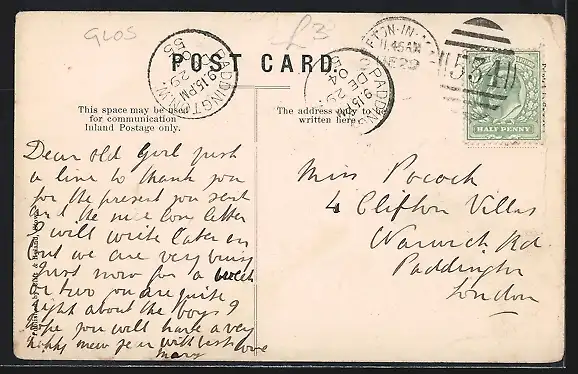 GLOS
£3
POST CARD.
PADDINGTON
9.15 PM
DE 29
04
PADDINGTON
9.15 PM
DE 29
04
ETON-IN-
11.45AM
DE 29
534
HALF PENNY
This space may be used
for communication
Inland Postage only.
The address only to be
written here
Dear old Girl just
a line to thank you
for the present you sent
and the nice long letter
I will write later on
but we are very busy
just now for a week
or two you are quite
right about the boys I
hope you will have a very
happy new year with best love
Mary
Miss Pocock
4 Clifton Villas
Warwick Rd.
Paddington
London